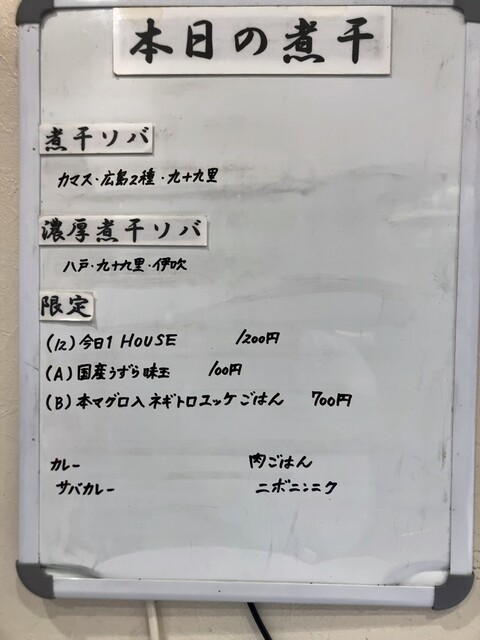 本日の煮干
煮干ソバ
カマス・広島2種・九十九里
濃厚煮干ソバ
八戸・九十九里・伊吹
限定
(12) 今日1 HOUSE 1200円
(A) 国産うずら味玉 100円
(B) 本マグロ入ネギトロユッケごはん 700円
カレー 肉ごはん
サバカレー ニボニンニク